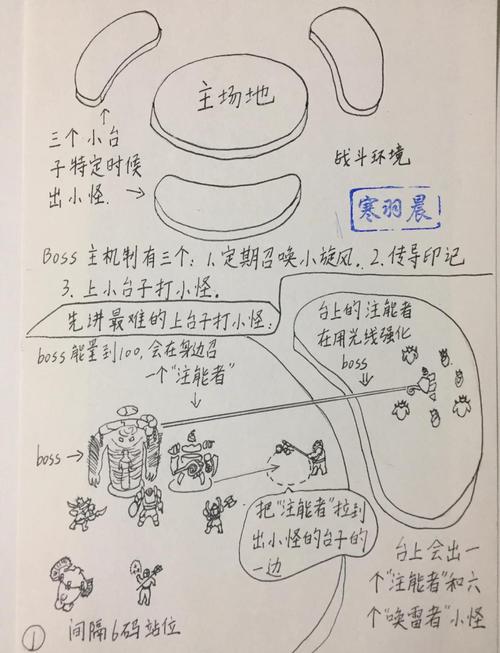 主场地
三个小台
子特定时候
出小怪.
战斗环境
寒羽晨
Boss 主机制有三个：1.定期召唤小旋风. 2.传导印记
3.上小台子打小怪.
先讲最难的上台子打小怪：
boss能量到100,会在身边召
一个"注能者"
台上的注能者
在用光线强化
boss
boss
把"注能者"拉到
出小怪的台子的
一边
台上会出一
个"注能者"和六
个"唤雷者"小怪
间隔6码站位
1